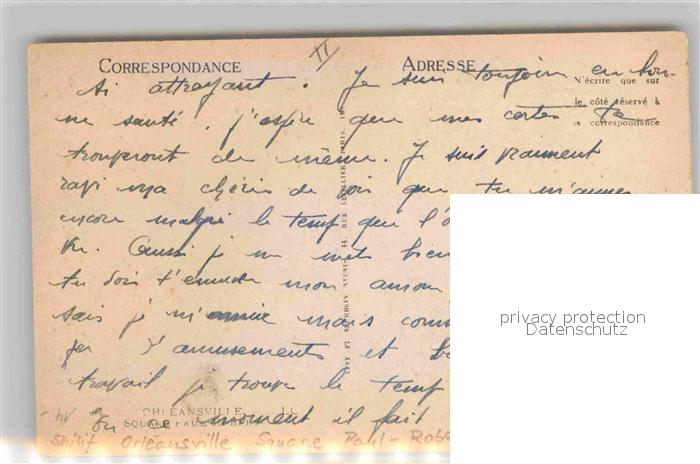 II
CORRESPONDANCE ADRESSE
N'écrire que sur
le côté réservé à
la correspondance
si attrayant. Je suis toujours en bon-
ne santé. J'espère que mes cartes te
trouveront de même. Je suis vraiment
ravi ma chérie de voir que tu m'aimes
encore malgré le temps que l'o
vu. Aussi je me mets bien
tu dois t'ennuier mon amour
sais je m'ennuie mais comm
ger d'amusements et
travail je trouve le temps
En ce moment il fait
ORLÉANSVILLE
SQUARE PAUL
privacy protection
Datenschutz
shilif Orléansville Square Paul-Rob